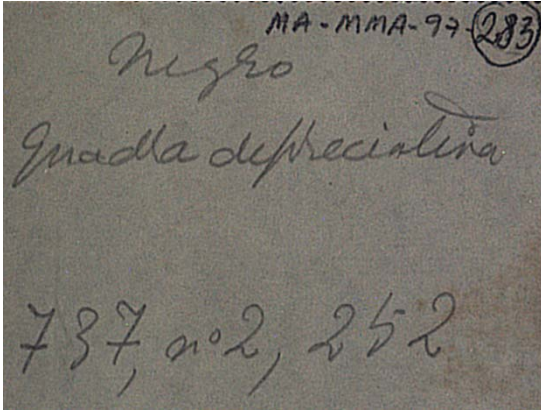 MA-MMA-97-283
Negro
Quadra depreciativa
737, nº2, 252